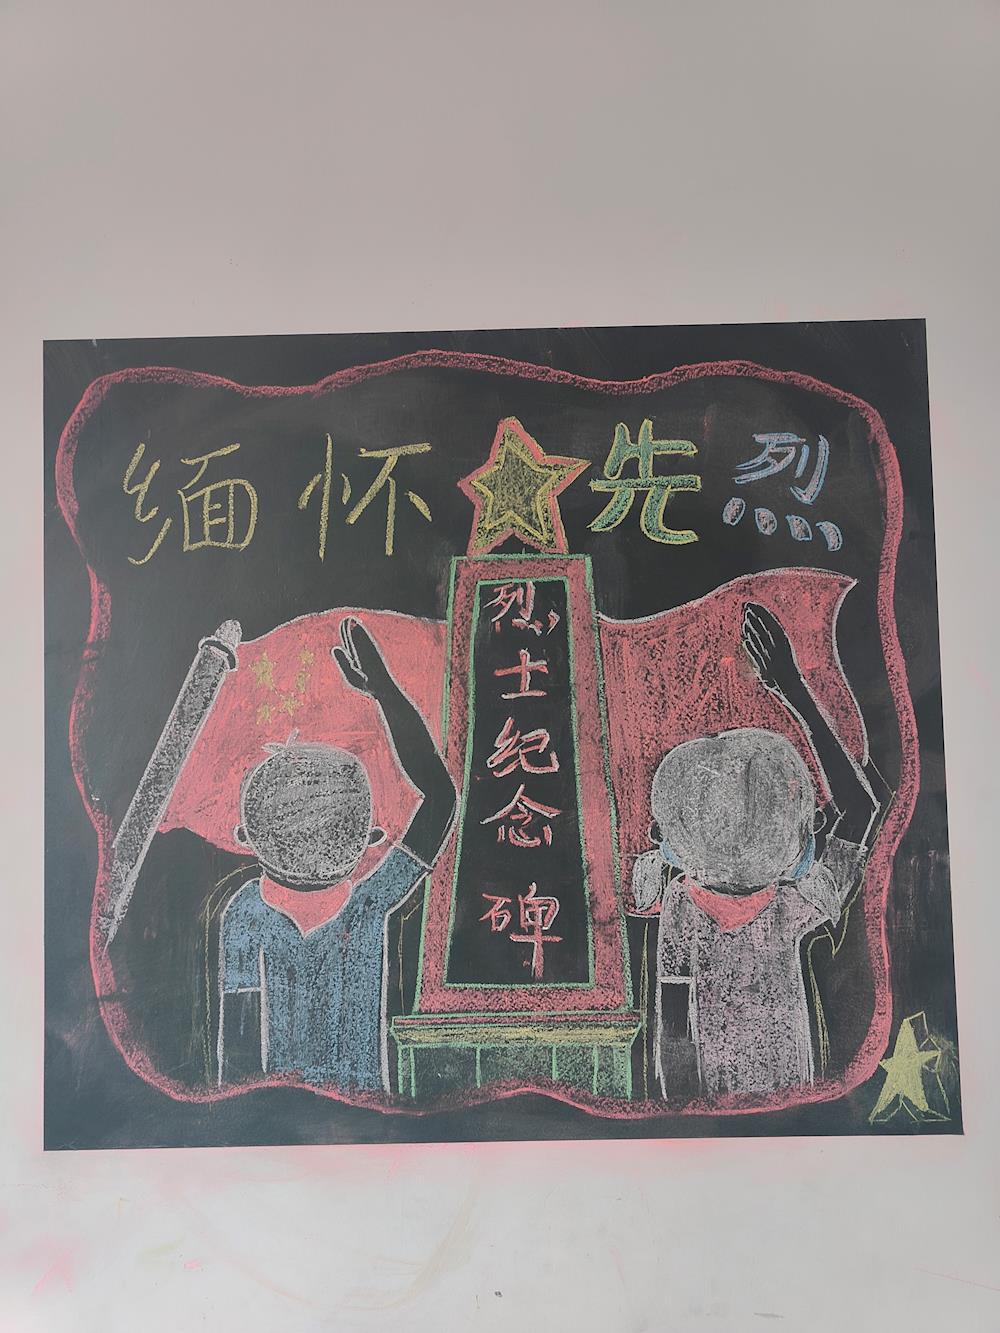 缅怀先烈
烈士纪念碑